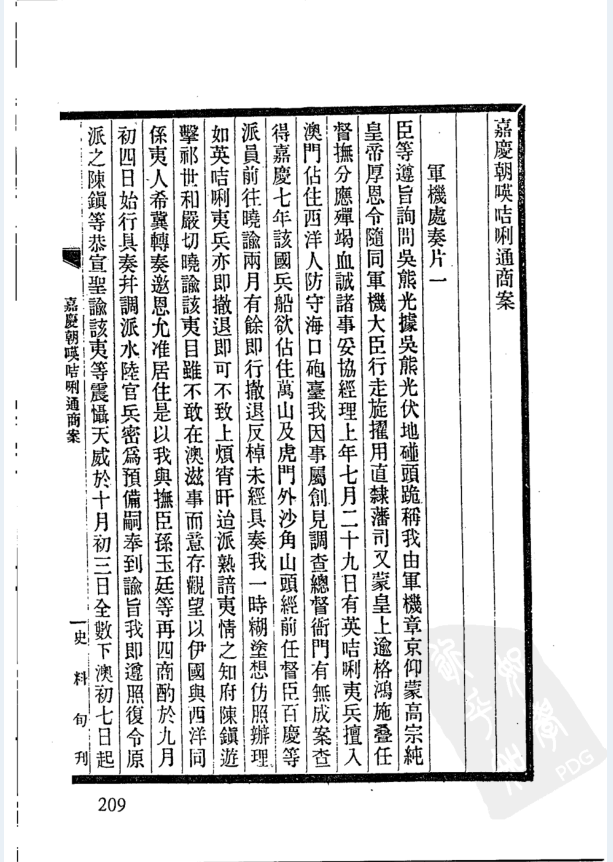 嘉慶朝㗸咭唎通商案
軍機處奏片一
臣等遵旨詢問吳熊光據吳熊光伏地碰頭跪稱我由軍機章京仰蒙高宗純
皇帝厚恩令隨同軍機大臣行走旋擢用直隸藩司又蒙皇上逾格鴻施叠任
督撫分應殫竭血誠諸事妥協經理上年七月二十九日有英咭唎夷兵擅入
澳門佔住西洋人防守海口砲臺我因事屬創見調查總督衙門有無成案查
得嘉慶七年該國兵船欲佔住萬山及虎門外沙角山頭經前任督臣吉慶等
派員前往曉諭兩月有餘即行撤退反棹未經具奏我一時糊塗想仿照辦理
如英咭唎夷兵亦即撤退即可不致上煩宵旰迨派熟諳夷情之知府陳鎮遊
擊祁世和嚴切曉諭該夷目雖不敢在澳滋事而意存觀望以伊國與西洋同
係夷人希冀轉奏邀恩允准居住是以我與撫臣孫玉廷等再四商酌於九月
初四日始行具奏幷調派水陸官兵密爲預備嗣奉到諭旨我即遵照復令原
派之陳鎮等恭宣聖諭該夷等震懾天威於十月初三日全數下澳初七日起
嘉慶朝㗸咭唎通商案
一
史料旬刊
209
PDG